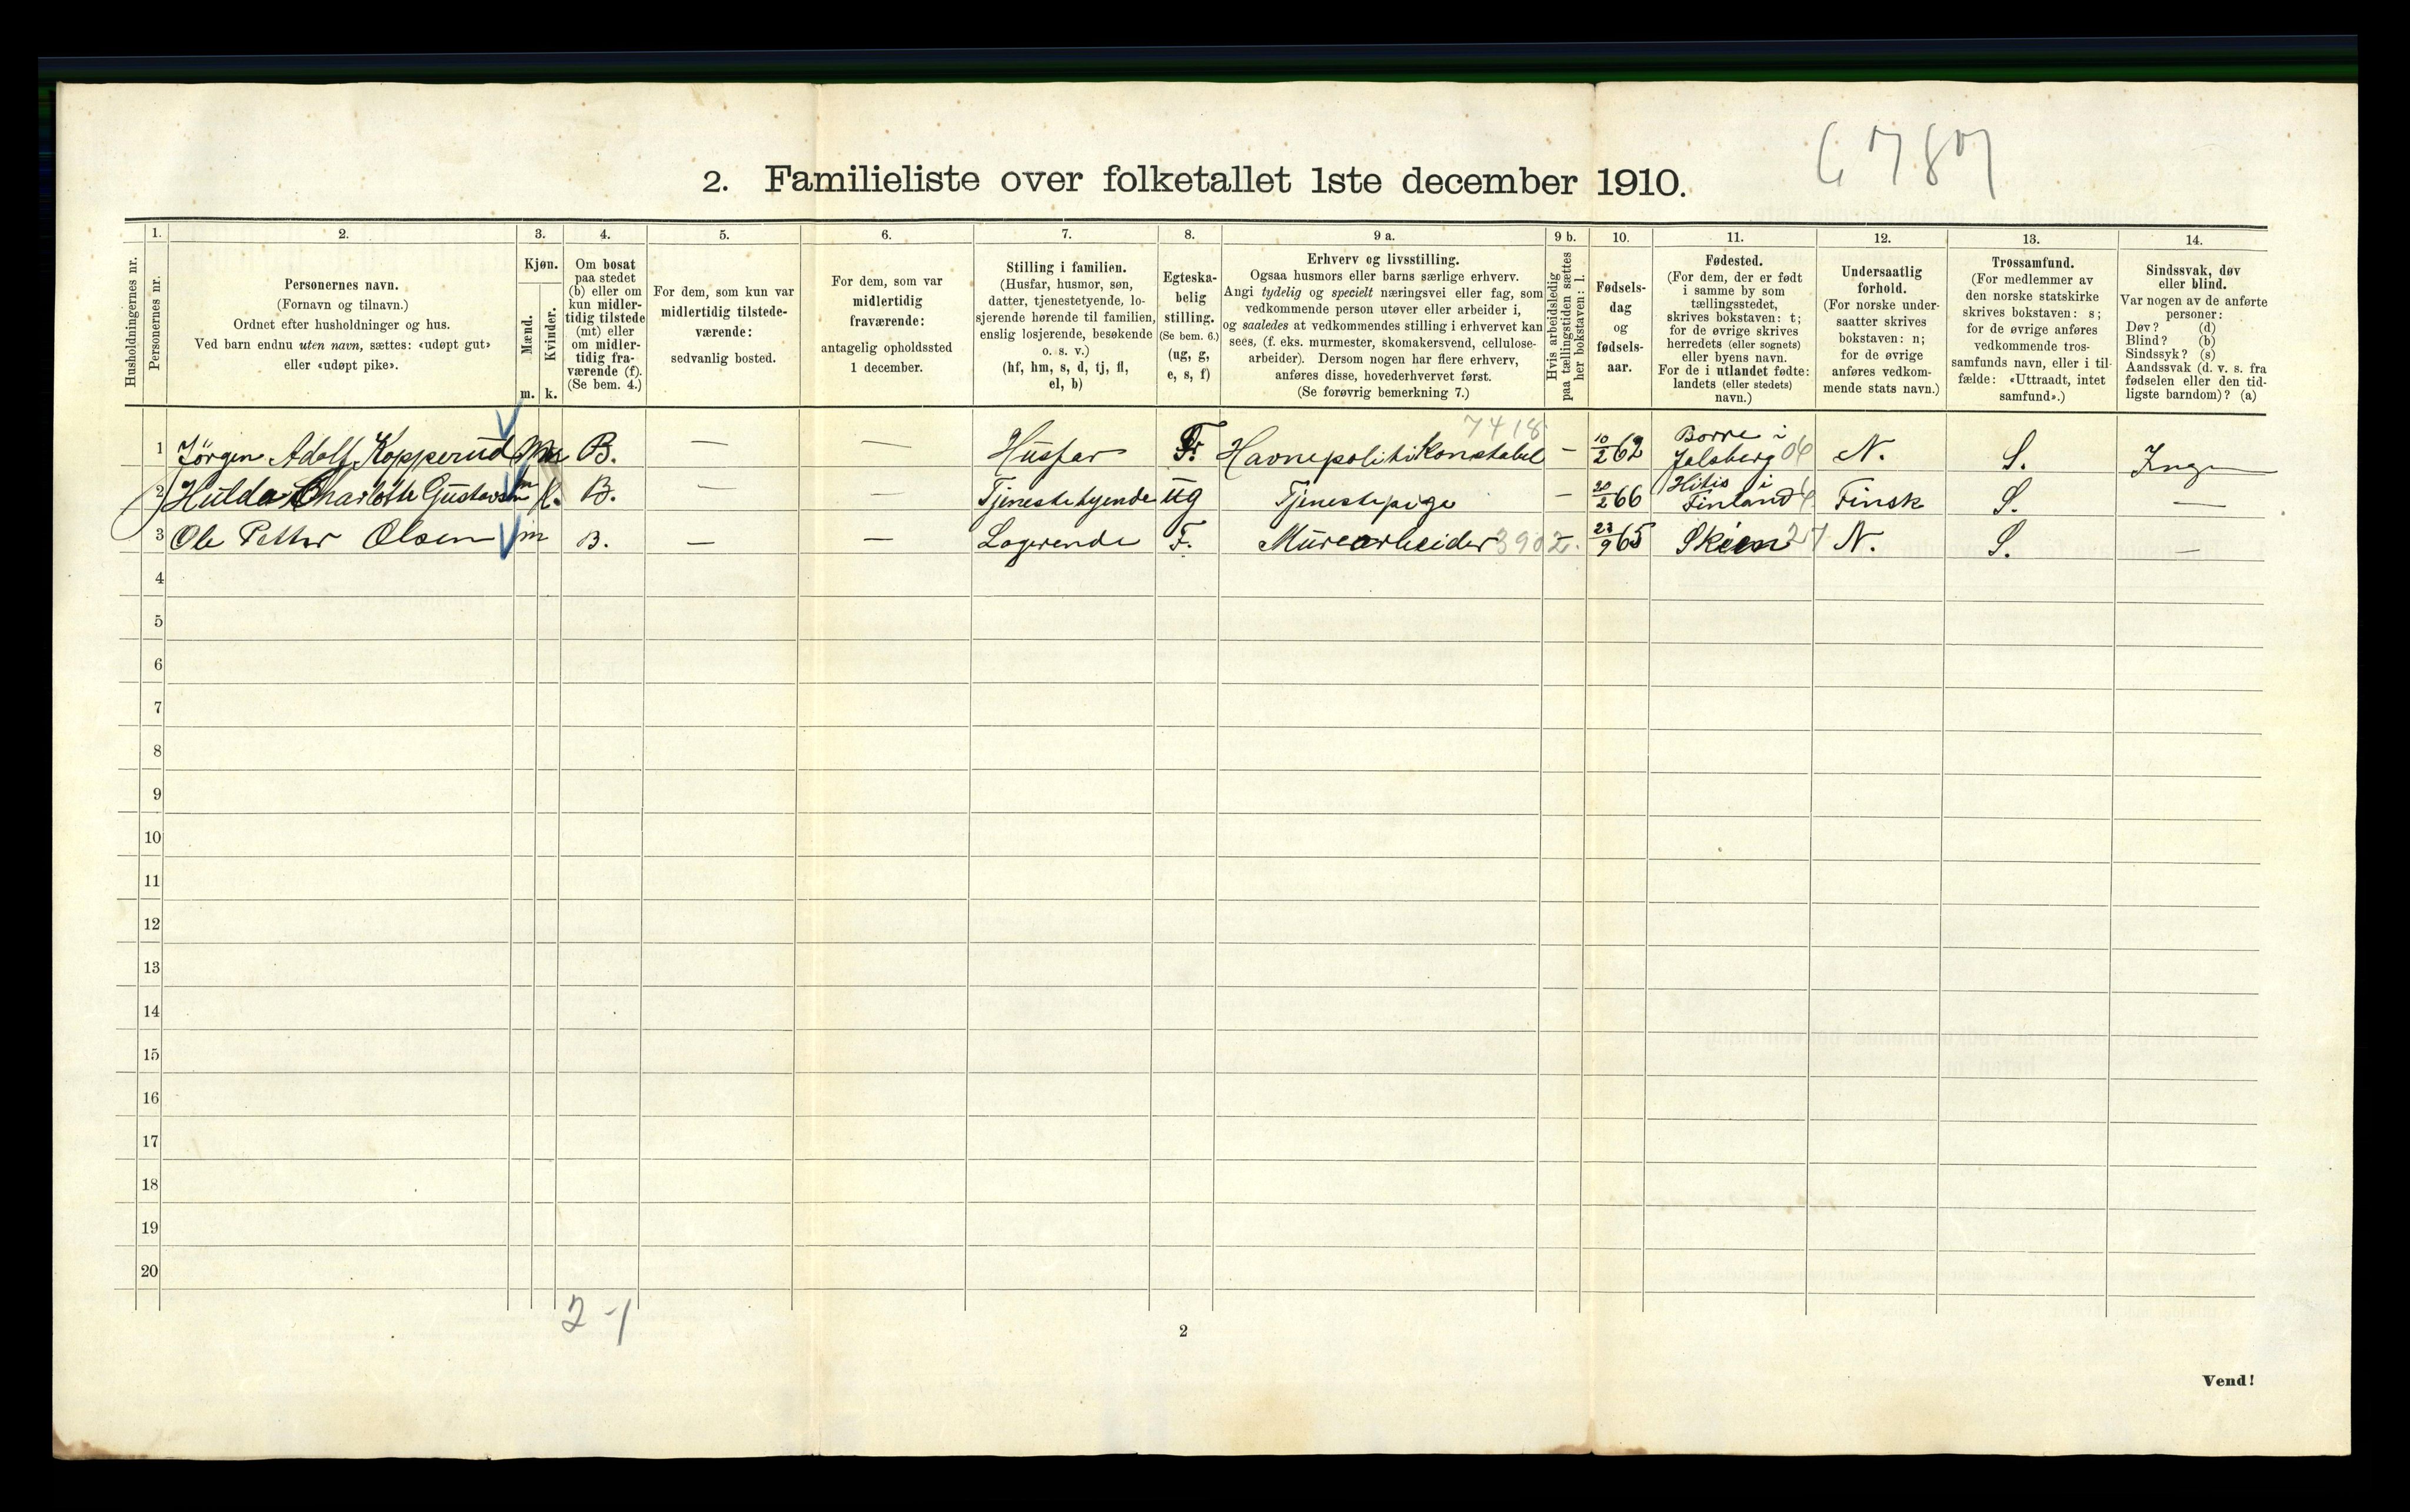 6787
2. Familieliste over folketallet 1ste december 1910.
Husholdningernes nr.
1.
Personernes nr.
2.
Personernes navn.
(Fornavn og tilnavn.)
Ordnet efter husholdninger og hus.
Ved barn endnu uten navn, sættes: «udøpt gut»
eller «udøpt pike».
3.
Kjøn.
Mænd.
Kvinder.
m. k.
4.
Om bosat
paa stedet
(b) eller om
kun midler-
tidig tilstede
(mt) eller
om midler-
tidig fra-
værende (f).
(Se bem. 4.)
5.
For dem, som kun var
midlertidig tilstede-
værende:
sedvanlig bosted.
6.
For dem, som var
midlertidig
fraværende:
antagelig opholdssted
1 december.
7.
Stilling i familien.
(Husfar, husmor, søn,
datter, tjenestetyende, lo-
sjerende hørende til familien,
enslig losjerende, besøkende
o. s. v.)
(hf, hm, s, d, tj, fl,
el, b)
8.
Egteska-
belig
stilling.
(Se bem. 6.)
(ug, g,
e, s, f)
9 a.
Erhverv og livsstilling.
Ogsaa husmors eller barns særlige erhverv.
Angi tydelig og specielt næringsvei eller fag, som
vedkommende person utøver eller arbeider i,
og saaledes at vedkommendes stilling i erhvervet kan
sees, (f. eks. murmester, skomakersvend, cellulose-
arbeider). Dersom nogen har flere erhverv,
anføres disse, hovederhvervet først.
(Se forøvrig bemerkning 7.)
9 b.
Hvis arbeidsledig
paa tællingstiden sættes
her bokstaven: l.
10.
Fødsels-
dag
og
fødsels-
aar.
11.
Fødested.
(For dem, der er født
i samme by som
tællingsstedet,
skrives bokstaven: t;
for de øvrige skrives
herredets (eller sognets)
eller byens navn.
For de i utlandet fødte:
landets (eller stedets)
navn.)
12.
Undersaatlig
forhold.
(For norske under-
saatter skrives
bokstaven: n;
for de øvrige
anføres vedkom-
mende stats navn.)
13.
Trossamfund.
(For medlemmer av
den norske statskirke
skrives bokstaven: s;
for de øvrige anføres
vedkommende tros-
samfunds navn, eller i til-
fælde: «Uttraadt, intet
samfund».)
14.
Sindssvak, døv
eller blind.
Var nogen av de anførte
personer:
Døv? (d)
Blind? (b)
Sindssyk? (s)
Aandssvak (d. v. s. fra
fødselen eller den tid-
ligste barndom)? (a)
1 Jörgen Adolf Kopperud B. — — Husfar Fr. Havnepolitikonstabel 7418 — 10/2 62 Borre i Jalsberg 06 N. S. Ingen
2 Hulda Charlotte Gustavsen k. B. — — Tjenestetyende ug Tjenestepige — 20/2 66 Hitis i Finland Finsk S. —
3 Ole Petter Olsen m B. — — Logerende F. Murearbeider 3902 — 23/9 65 Skien 27 N. S. —
4
5
6
7
8
9
10
11
12
13
14
15
16
17
18
19
20
2-1
2
Vend!